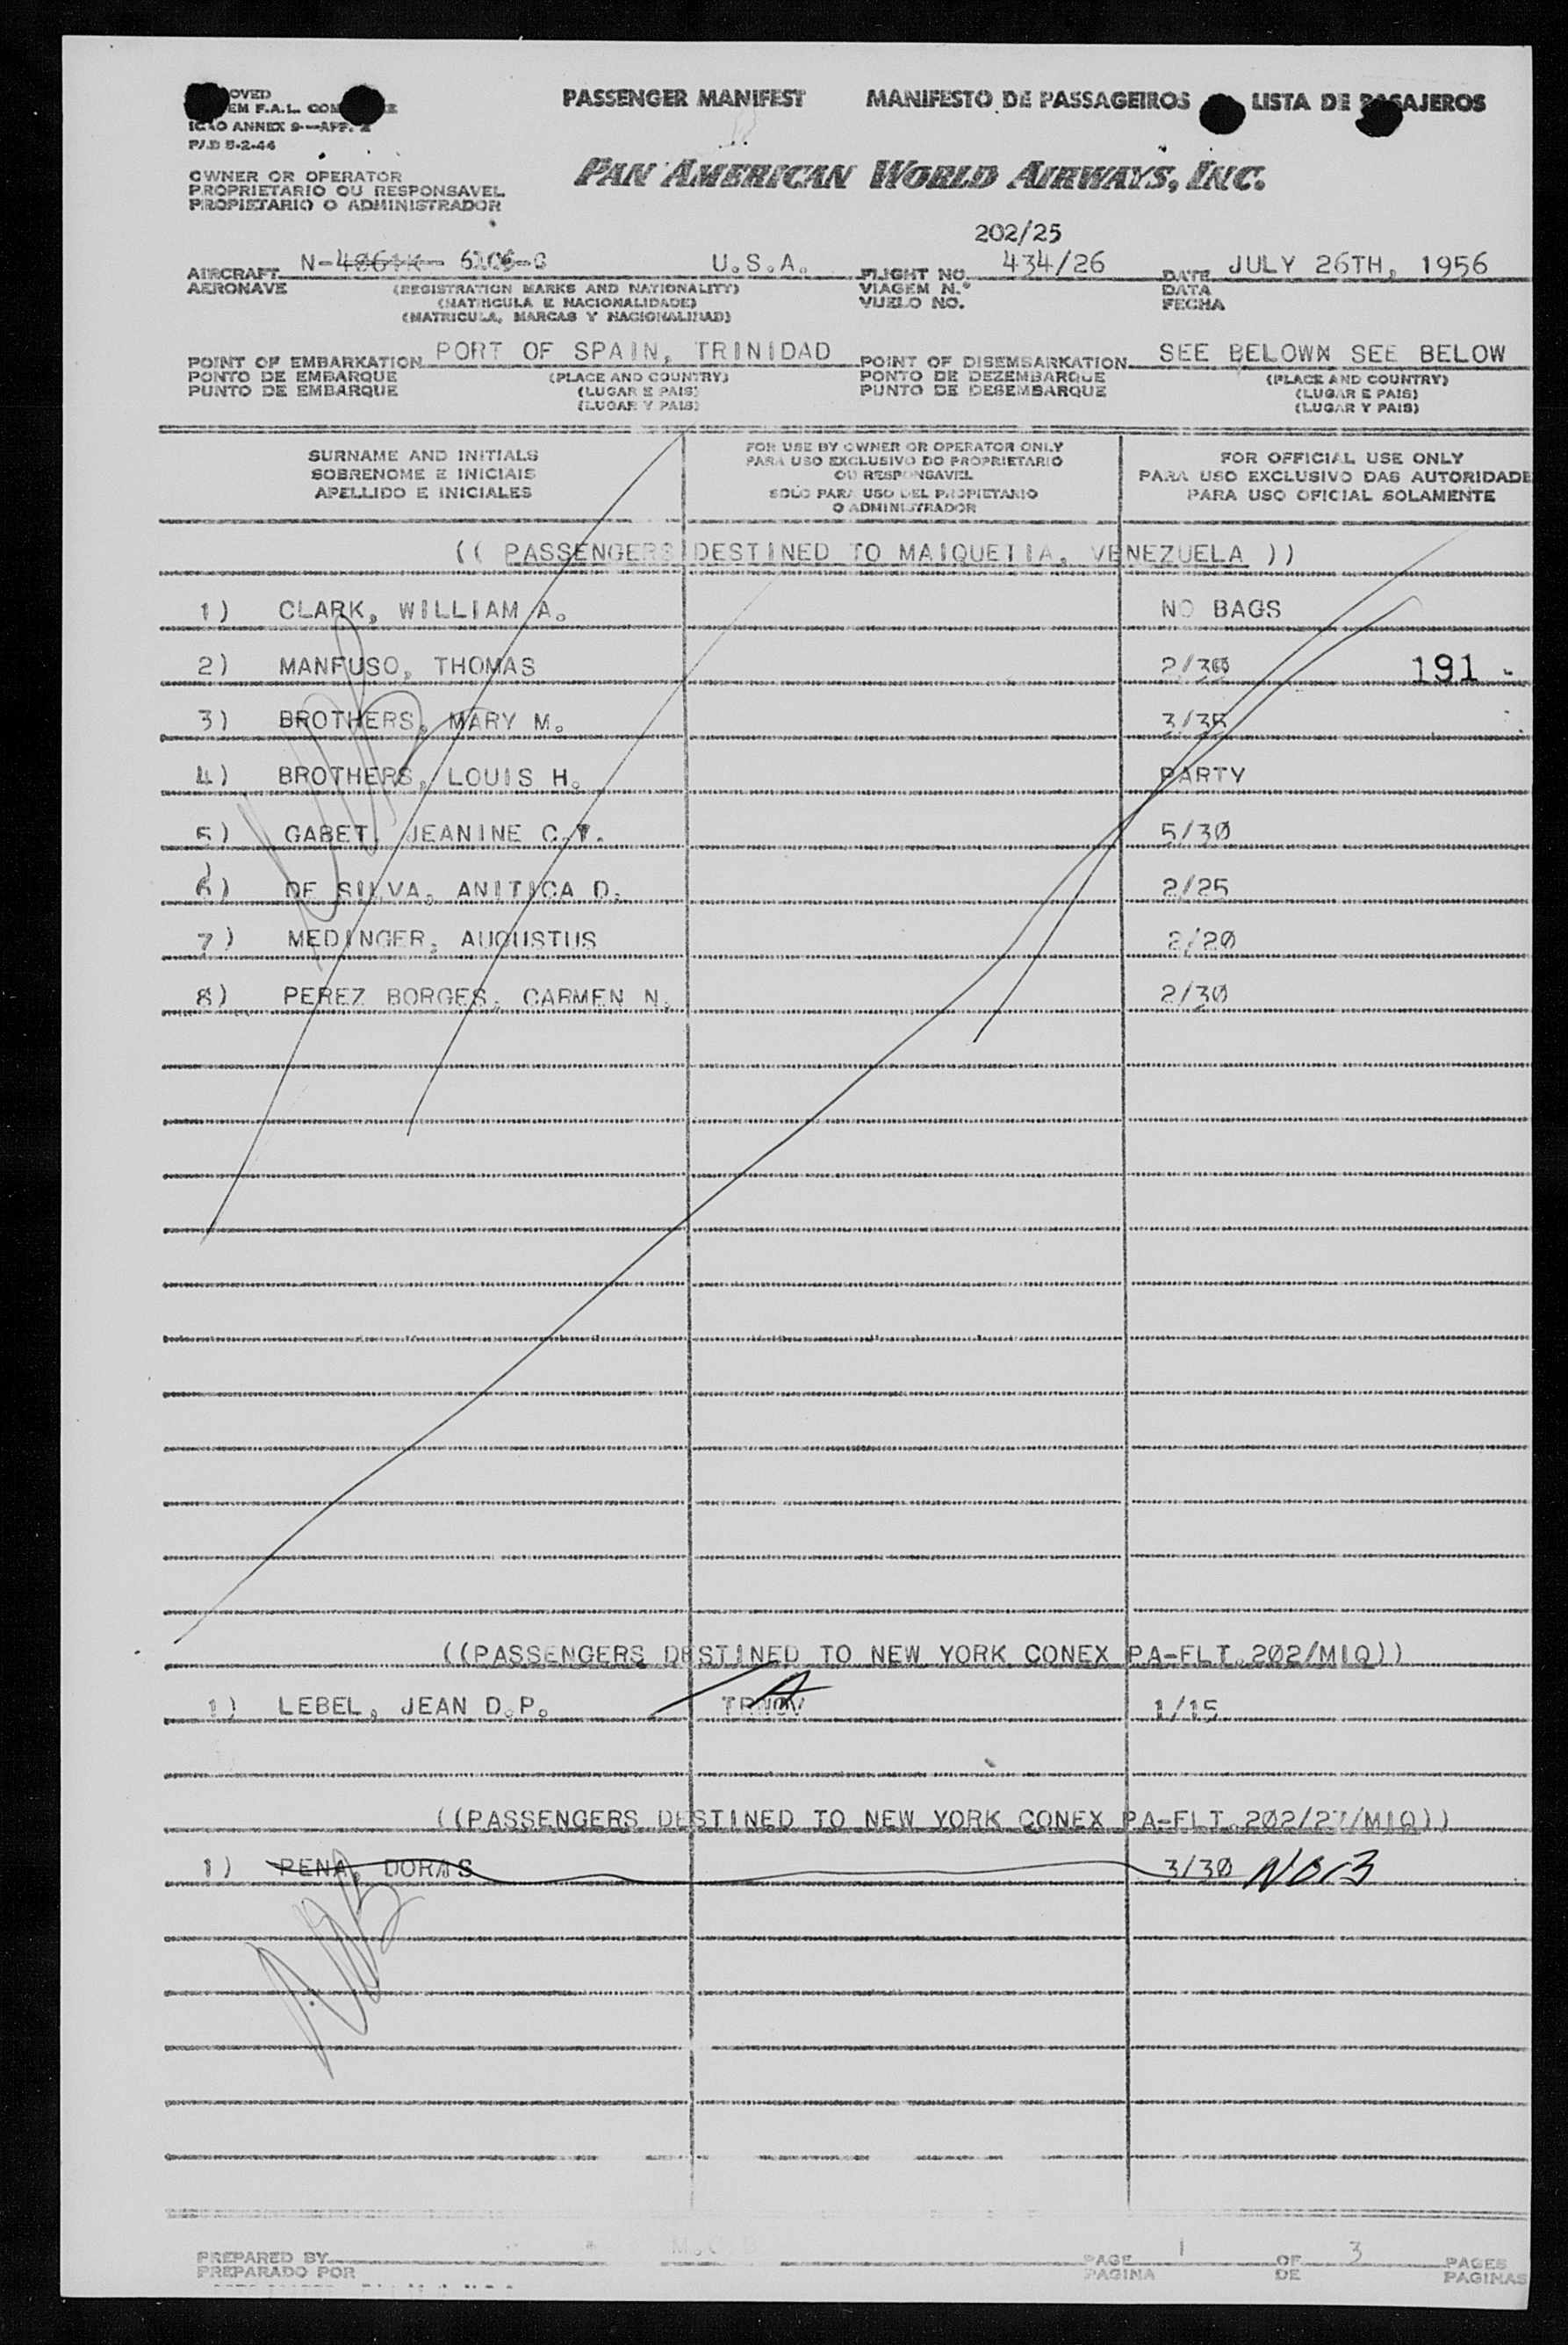 PASSENGER MANIFEST MANIFESTO DE PASSAGEIROS LISTA DE PASAJEROS
OVED
EM F.A.L. COM
ICAO ANNEX 9—APP. 2
PAN AMERICAN WORLD AIRWAYS, INC.
OWNER OR OPERATOR
PROPRIETARIO OU RESPONSAVEL
PROPIETARIO O ADMINISTRADOR
202/25
AIRCRAFT N-4861K- U.S.A. FLIGHT NO. 434/26 DATE JULY 26TH, 1956
AERONAVE (REGISTRATION MARKS AND NATIONALITY) VIAGEM N.º DATA
(MATRICULA E NACIONALIDADE) VUELO NO. FECHA
(MATRICULA, MARCAS Y NACIONALIDAD)
POINT OF EMBARKATION PORT OF SPAIN, TRINIDAD POINT OF DISEMBARKATION SEE BELOWN SEE BELOW
PONTO DE EMBARQUE (PLACE AND COUNTRY) PONTO DE DEZEMBARQUE (PLACE AND COUNTRY)
PUNTO DE EMBARQUE (LUGAR E PAIS) PUNTO DE DESEMBARQUE (LUGAR E PAIS)
(LUGAR Y PAIS) (LUGAR Y PAIS)
SURNAME AND INITIALS
SOBRENOME E INICIAIS
APELLIDO E INICIALES
FOR USE BY OWNER OR OPERATOR ONLY
PARA USO EXCLUSIVO DO PROPRIETARIO
OU RESPONSAVEL
SOLO PARA USO DEL PROPIETARIO
O ADMINISTRADOR
FOR OFFICIAL USE ONLY
PARA USO EXCLUSIVO DAS AUTORIDADE
PARA USO OFICIAL SOLAMENTE
(( PASSENGERS DESTINED TO MAIQUETIA, VENEZUELA ))
1) CLARK, WILLIAM A. NO BAGS
2) MANFUSO, THOMAS 191
3) BROTHERS, MARY M. 3/35
4) BROTHERS, LOUIS H. PARTY
5) GABET, JEANINE 5/30
6) DE SILVA, ANITICA D. 2/25
7) MEDINGER, AUGUSTUS 2/20
8) PEREZ BORGES, CARMEN N. 2/30
((PASSENGERS DESTINED TO NEW YORK CONEX PA-FLT.202/MIQ))
1) LEBEL, JEAN D.P. 1/15
((PASSENGERS DESTINED TO NEW YORK CONEX PA-FLT.202/27/MIQ))
1) PENA, DORIS 3/30
PREPARED BY PAGE 1 OF 3 PAGES
PREPARADO POR PAGINA DE PAGINAS